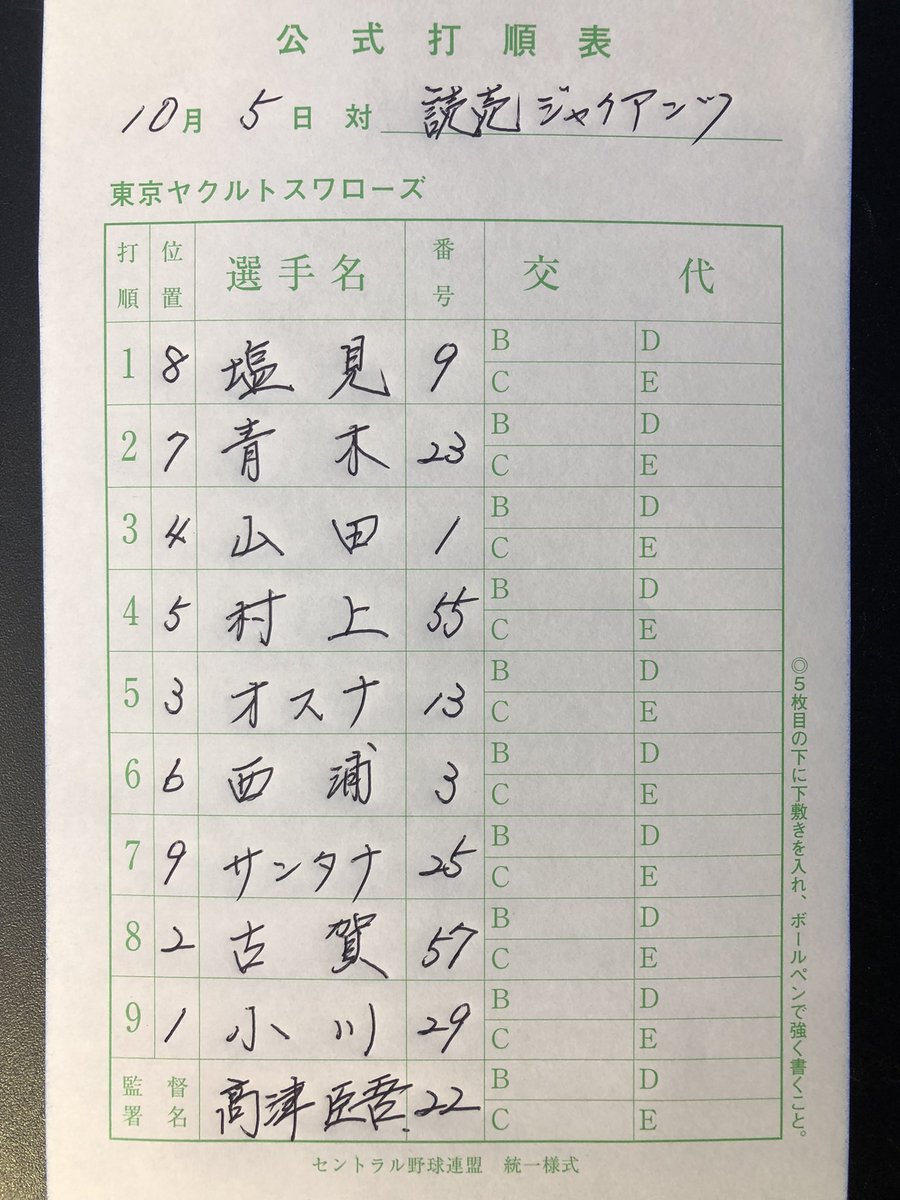 公式打順表
10月5日 対 読売ジャイアンツ
東京ヤクルトスワローズ
打順 位置 選手名 番号 交代
1 8 塩見 9 B D C E
2 7 青木 23 B D C E
3 4 山田 1 B D C E
4 5 村上 55 B D C E
5 3 オスナ 13 B D C E
6 6 西浦 3 B D C E
7 9 サンタナ 25 B D C E
8 2 古賀 57 B D C E
9 1 小川 29 B D C E
監督署名 高津臣吾 22 B D C E
◎5枚目の下に下敷きを入れ、ボールペンで強く書くこと。
セントラル野球連盟 統一様式